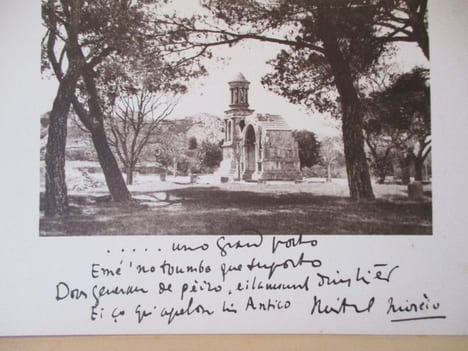 ..... uno grand porto
Emé 'no toumbo que suporto
Dous generau de pèiro, eilamount dins l'èr
Ei ço qu'apelon lis Antico Mistral Mirèio